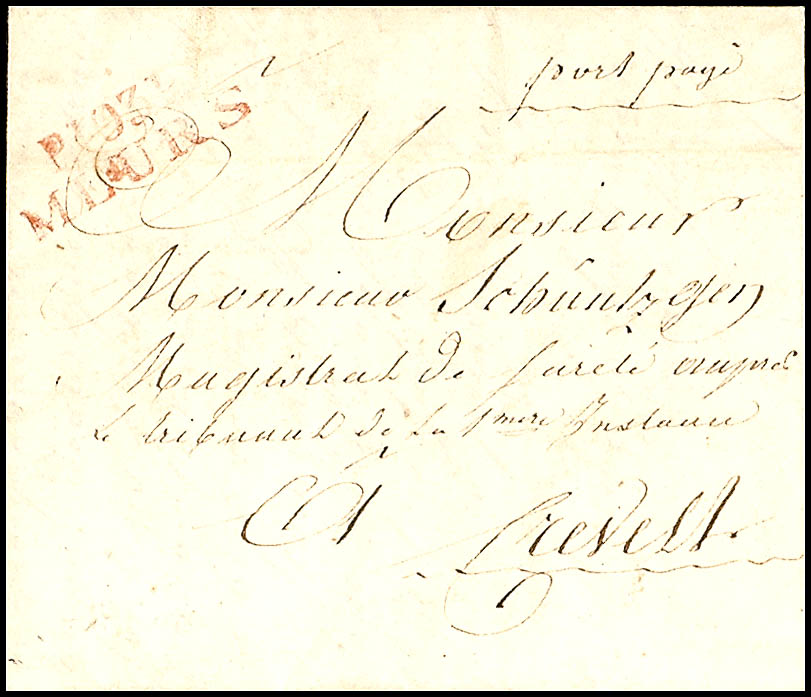 port payé
P103P
MEURS
Monsieur
Monsieur Schüntzgen
Magistrat de sureté aupres
le tribunal de la 1mere Instance
A Crevelt